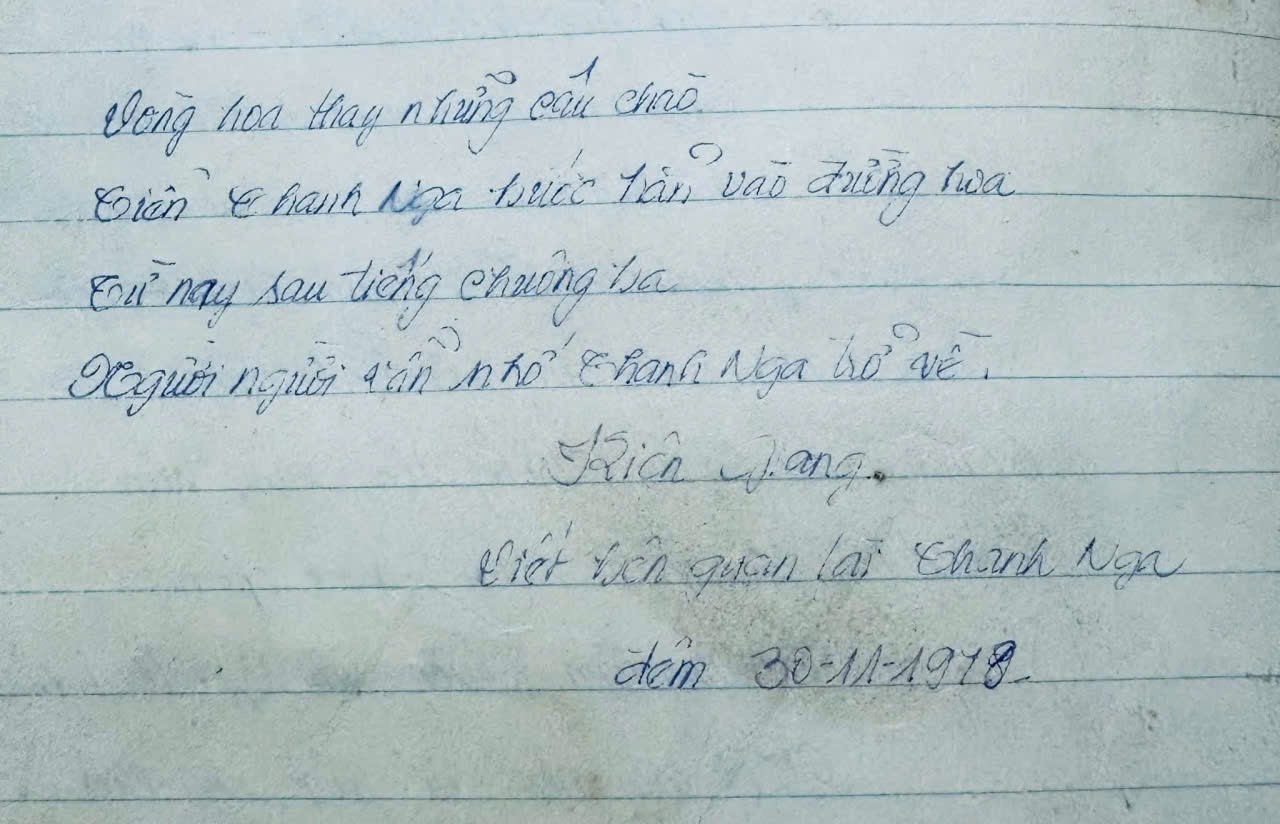 Vòng hoa thay những câu chào
Tiễn Thanh Nga bước hẳn vào đường hoa
Từ nay sau tiếng chuông ba
Người người vẫn nhớ Thanh Nga trở về.
Kiên Giang.
Viết bên quan tài Thanh Nga
đêm 30-11-1978.